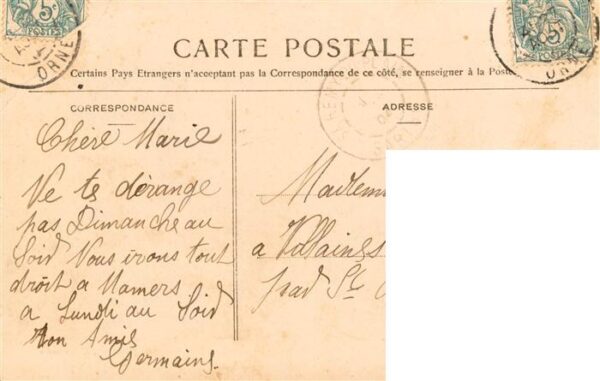 5c
POSTES
ORNE
ORNE
CARTE POSTALE
Certains Pays Etrangers n'acceptant pas la Correspondance de ce côté, se renseigner à la Poste
CORRESPONDANCE
ADRESSE
Chère Marie
Ne te dérange
pas Dimanche au
Soir Vous irons tout
droit a Mamers
a Lundi au Soir
ton Amie
Germaine
Mademo
a Villaines
par St